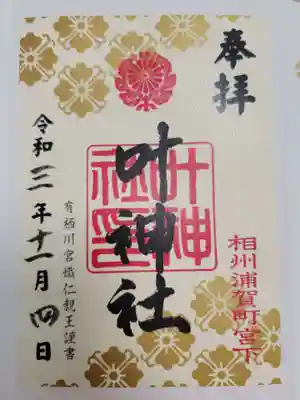 奉拝
相州浦賀町宮下
叶神社
叶神
社印
有栖川宮熾仁親王謹書
令和三年十一月四日